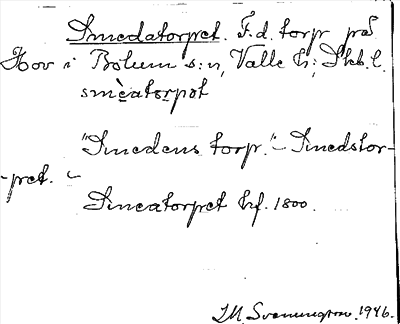 Smedatorpet. F.d. torp på
Hov i Bolum s:n, Valle h:; Skb.l.
smèatərpət
"Smedens torp." – Smedstor-
-pet. –
Smeatorpet hf. 1800.
Svenungson. 1946.